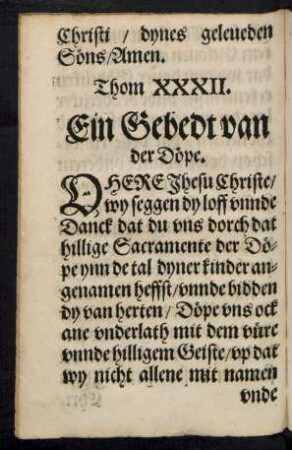 Christi / dynes geleueden
Söns/Amen.
Thom XXXII.
Ein Gebedt van
der Döpe.
OHERE Jhesu Christe/
wy seggen dy loff vnnde
Danck dat du vns dorch dat
hillige Sacramente der Dö-
pe ynn de tal dyner kinder an-
genamen heffst/vnnde bidden
dy van herten / Döpe vns ock
ane vnderlath mit dem vüre
vnnde hilligem Geiste/vp dat
wy nicht allene mit namen
vnde